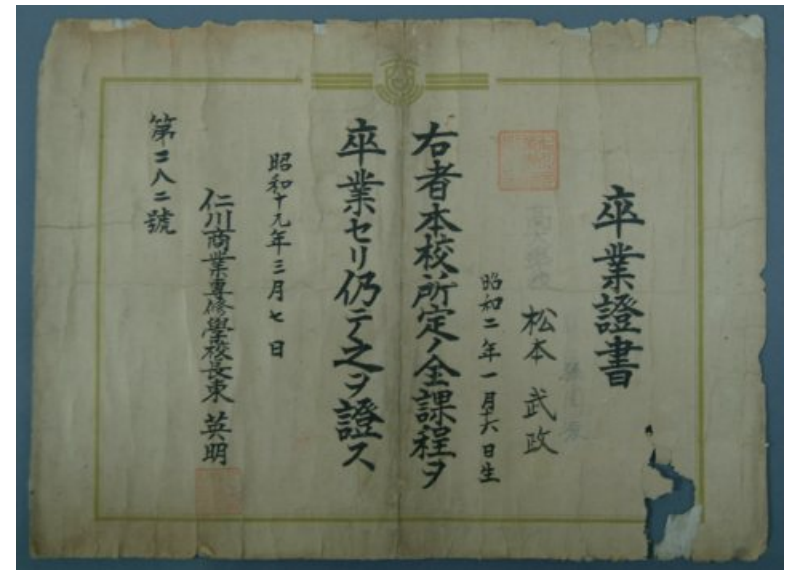 卒業證書
松本 武政
昭和二年一月六日生
右者本校所定ノ全課程ヲ
卒業セリ仍テ之ヲ證ス
昭和十九年三月七日
仁川商業專修學校長東 英明
第二八二號